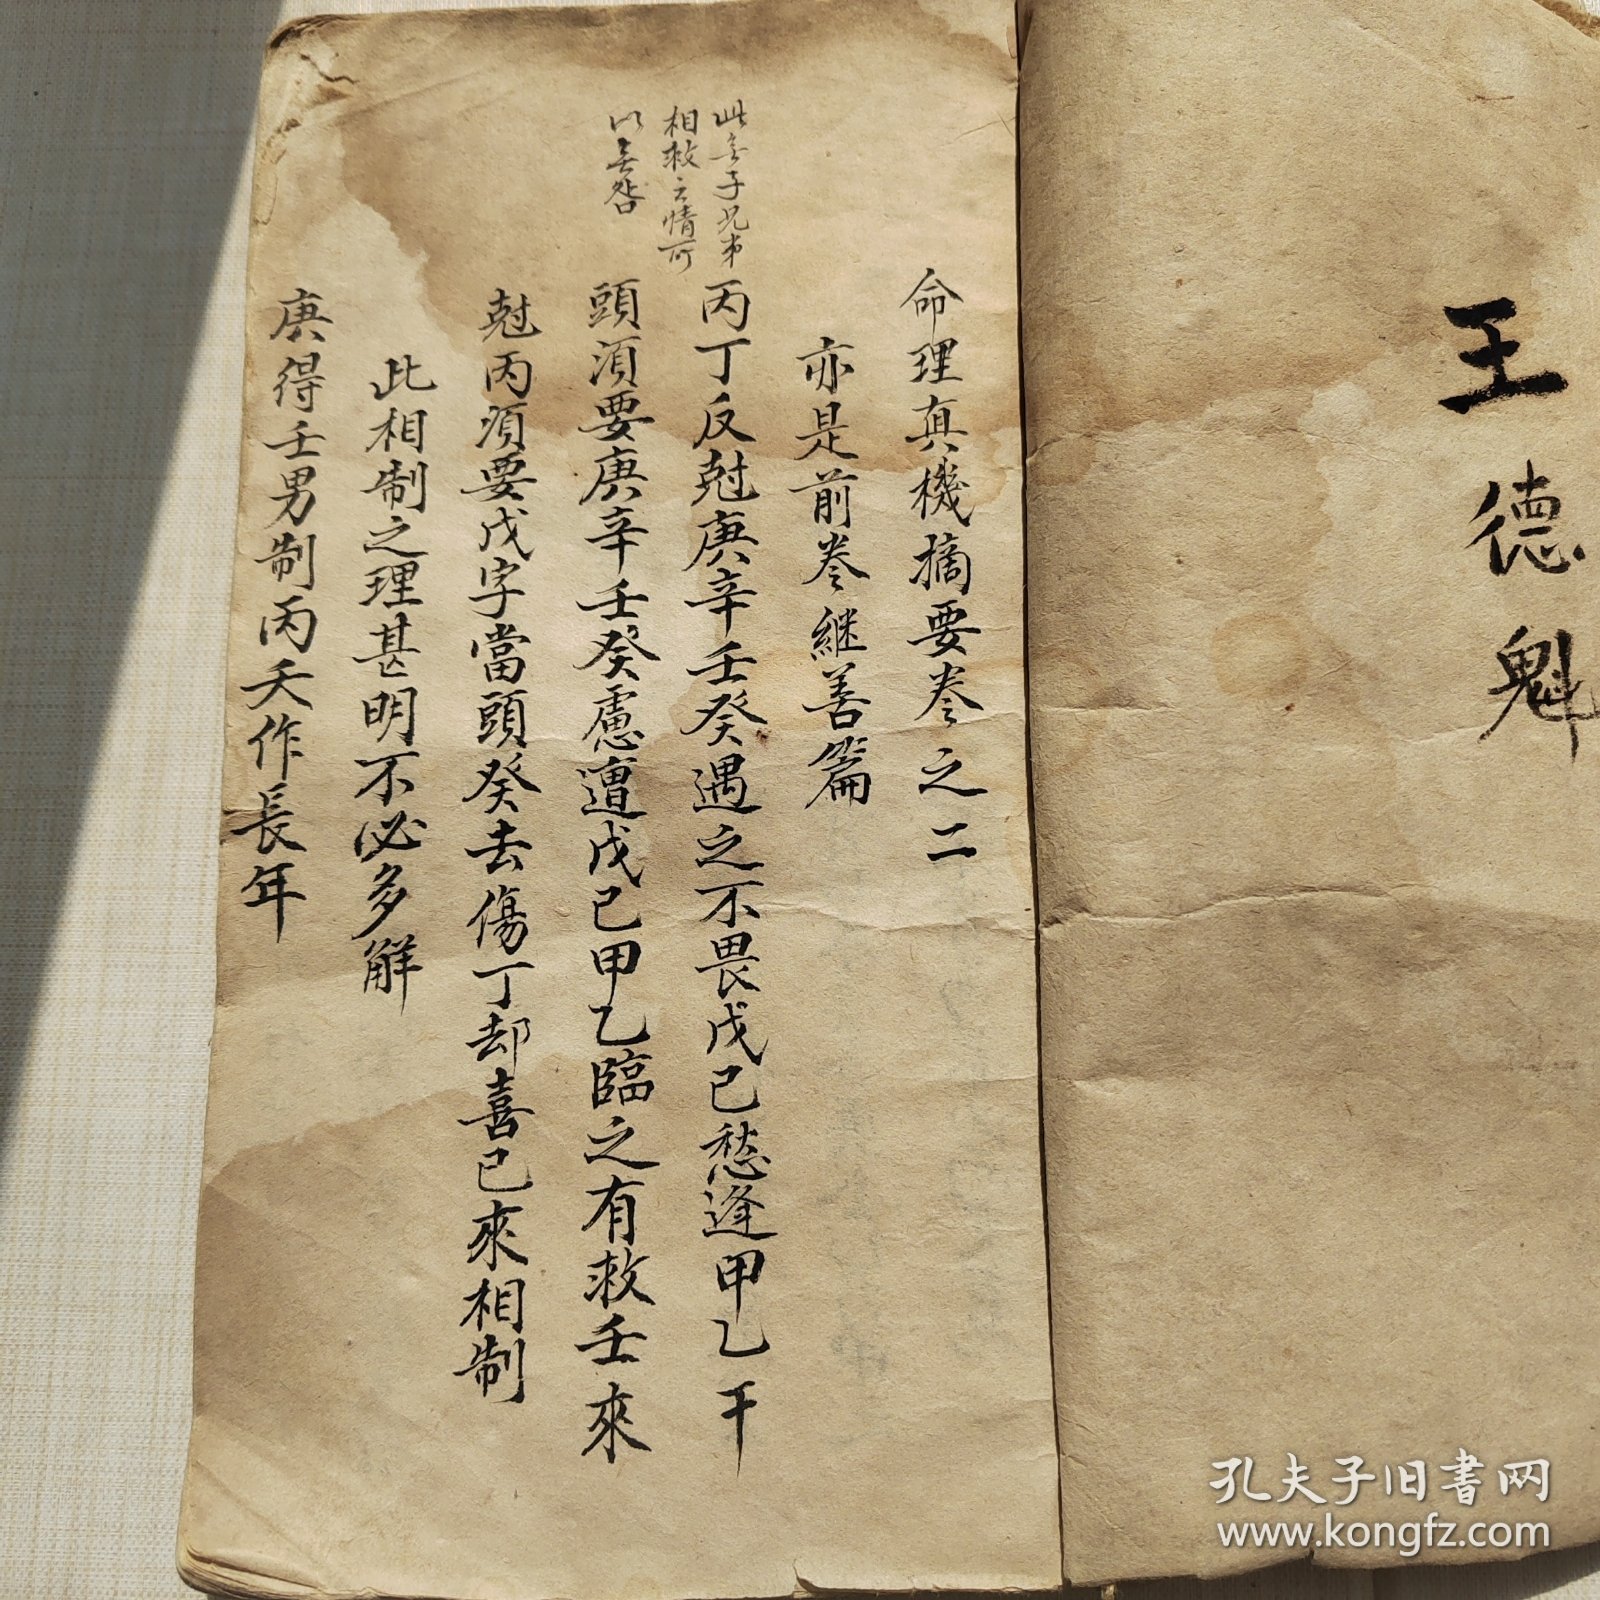 王德魁
命理真機摘要卷之二
亦是前卷継善篇
丙丁反尅庚辛壬癸遇之不畏戊己愁逢甲乙干
頭須要庚辛壬癸慮遭戊己甲乙臨之有救壬來
尅丙須要戊字當頭癸去傷丁却喜己來相制
此相制之理甚明不必多解
庚得壬男制丙夭作長年
此	子兄弟
相救之情可
以無咎
孔夫子旧书网
www.kongfz.com